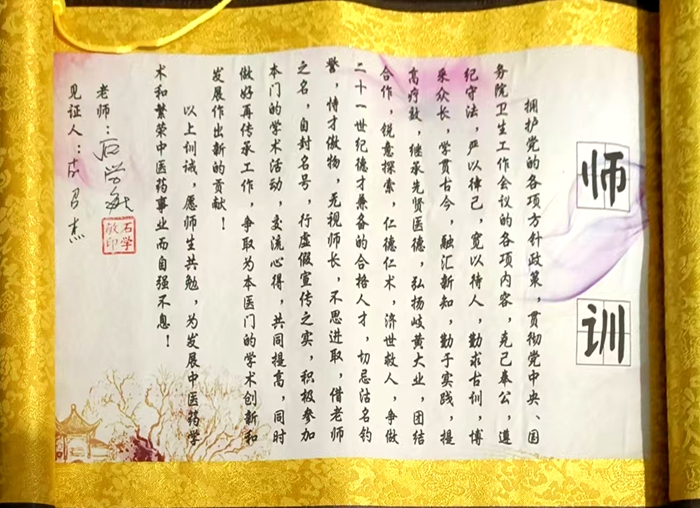 师训
拥护党的各项方针政策，贯彻党中央、国
务院卫生工作会议的各项内容，克己奉公，遵
纪守法，严以律己，宽以待人，勤求古训，博
采众长，学贯古今，融汇新知，勤于实践，提
高疗效，继承先贤医德，弘扬岐黄大业，团结
合作，锐意探索，仁德仁术，济世救人，争做
二十一世纪德才兼备的合格人才，切忌沽名钓
誉，恃才傲物，无视师长，不思进取，借老师
之名，自封名号，行虚假宣传之实，积极参加
本门的学术活动 交流心得，共同提高，同时
做好再传承工作，争取为本医门的学术创新和
发展作出新的贡献！
以上训诫，愿师生共勉，为发展中医药学
术和繁荣中医药事业而自强不息！
老师：石学敏
石学敏印
见证人：